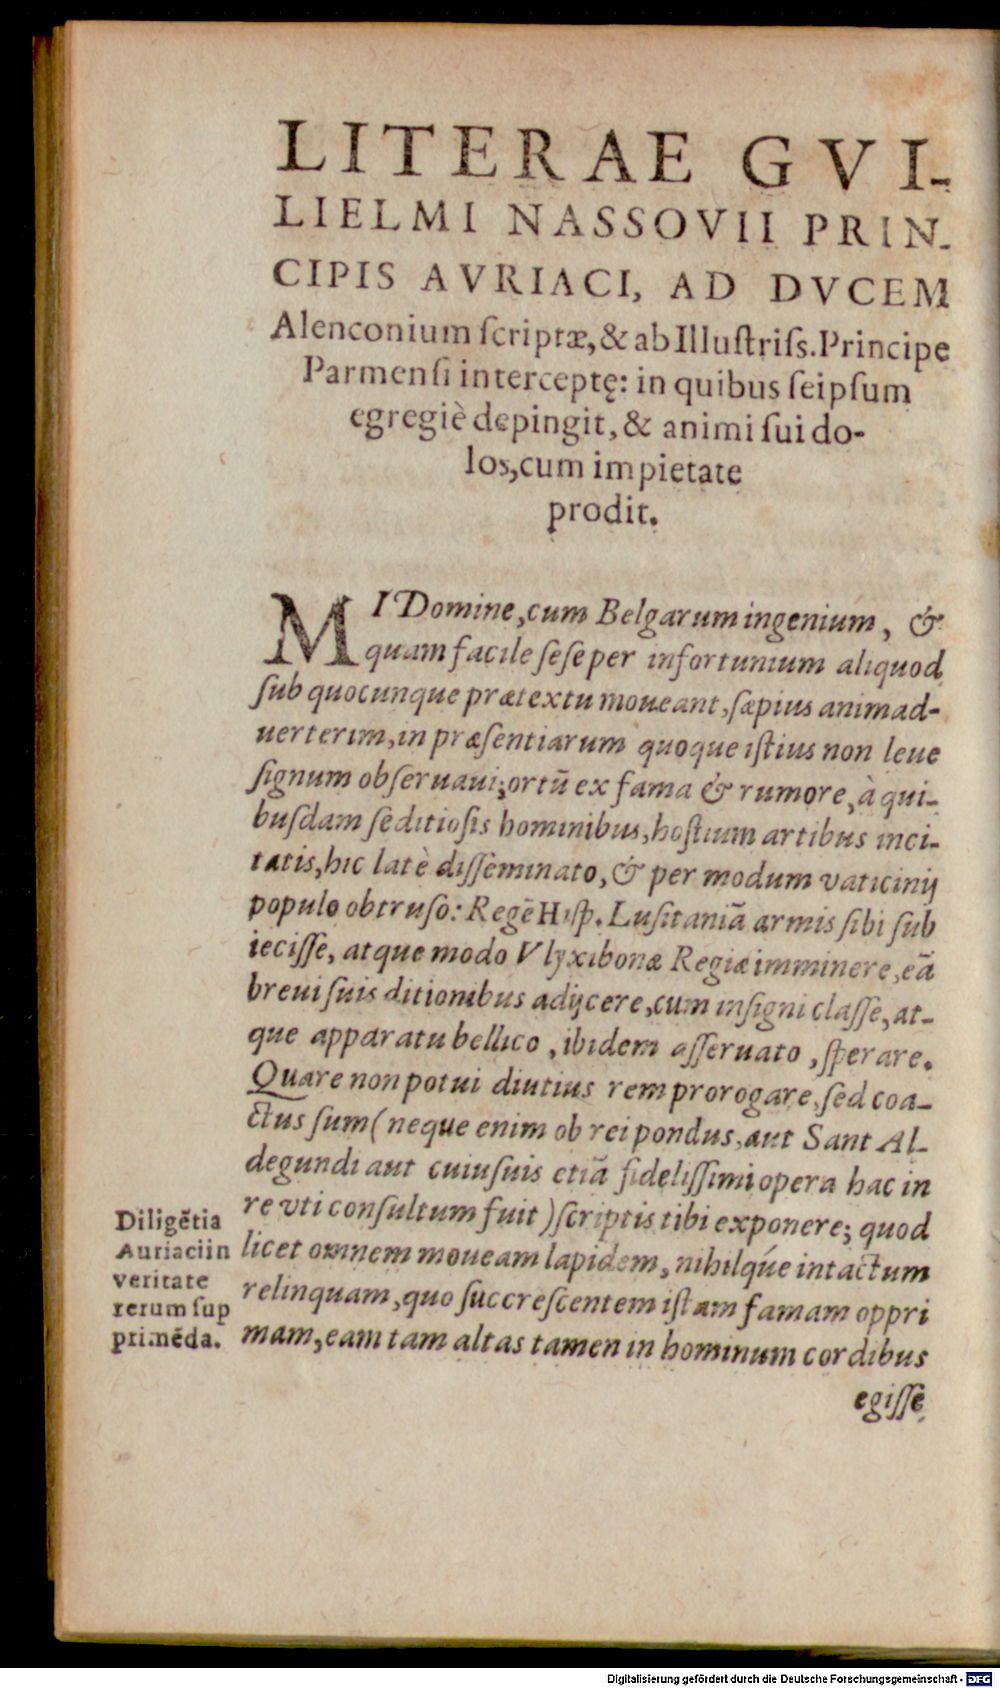 LITERAE GVI-
LIELMI NASSOVII PRIN-
CIPIS AVRIACI, AD DVCEM
Alenconium ſcriptæ, & ab Illuſtriſs. Principe
Parmenſi interceptę: in quibus ſeipſum
egregiè depingit, & animi ſui do-
los, cum impietate
prodit.
MI Domine, cum Belgarum ingenium, &
quam facile ſeſe per infortunium aliquod
ſub quocunque prætextu moueant, ſæpius animad-
uerterim, in præſentiarum quoque iſtius non leue
ſignum obſeruaui; ortũ ex fama & rumore, à qui-
buſdam ſeditioſis hominibus, hoſtium artibus inci-
tatis, hic latè diſſeminato, & per modum vaticinij
populo obtruſo: Regẽ Hiſp. Luſitaniã armis ſibi ſub
ieciſſe, atque modo Vlyxibonæ Regiæ imminere, eã
breui ſuis ditionibus adijcere, cum inſigni claſſe, at-
que apparatu bellico, ibidem aſſeruato, ſperare.
Quare non potui diutius rem prorogare, ſed coa-
ctus ſum (neque enim ob rei pondus, aut Sant Al-
degundi aut cuiuſuis etiã fideliſſimi opera hac in
re vti conſultum fuit) ſcriptis tibi exponere; quod
licet omnem moueam lapidem, nihilq́ue intactum
relinquam, quo ſuccreſcentem iſtam famam oppri
mam, eam tam altas tamen in hominum cordibus
egiſſe
Diligẽtia
Auriaci in
veritate
rerum ſup
primẽda.
Digitalisierung gefördert durch die Deutsche Forschungsgemeinschaft - DFG